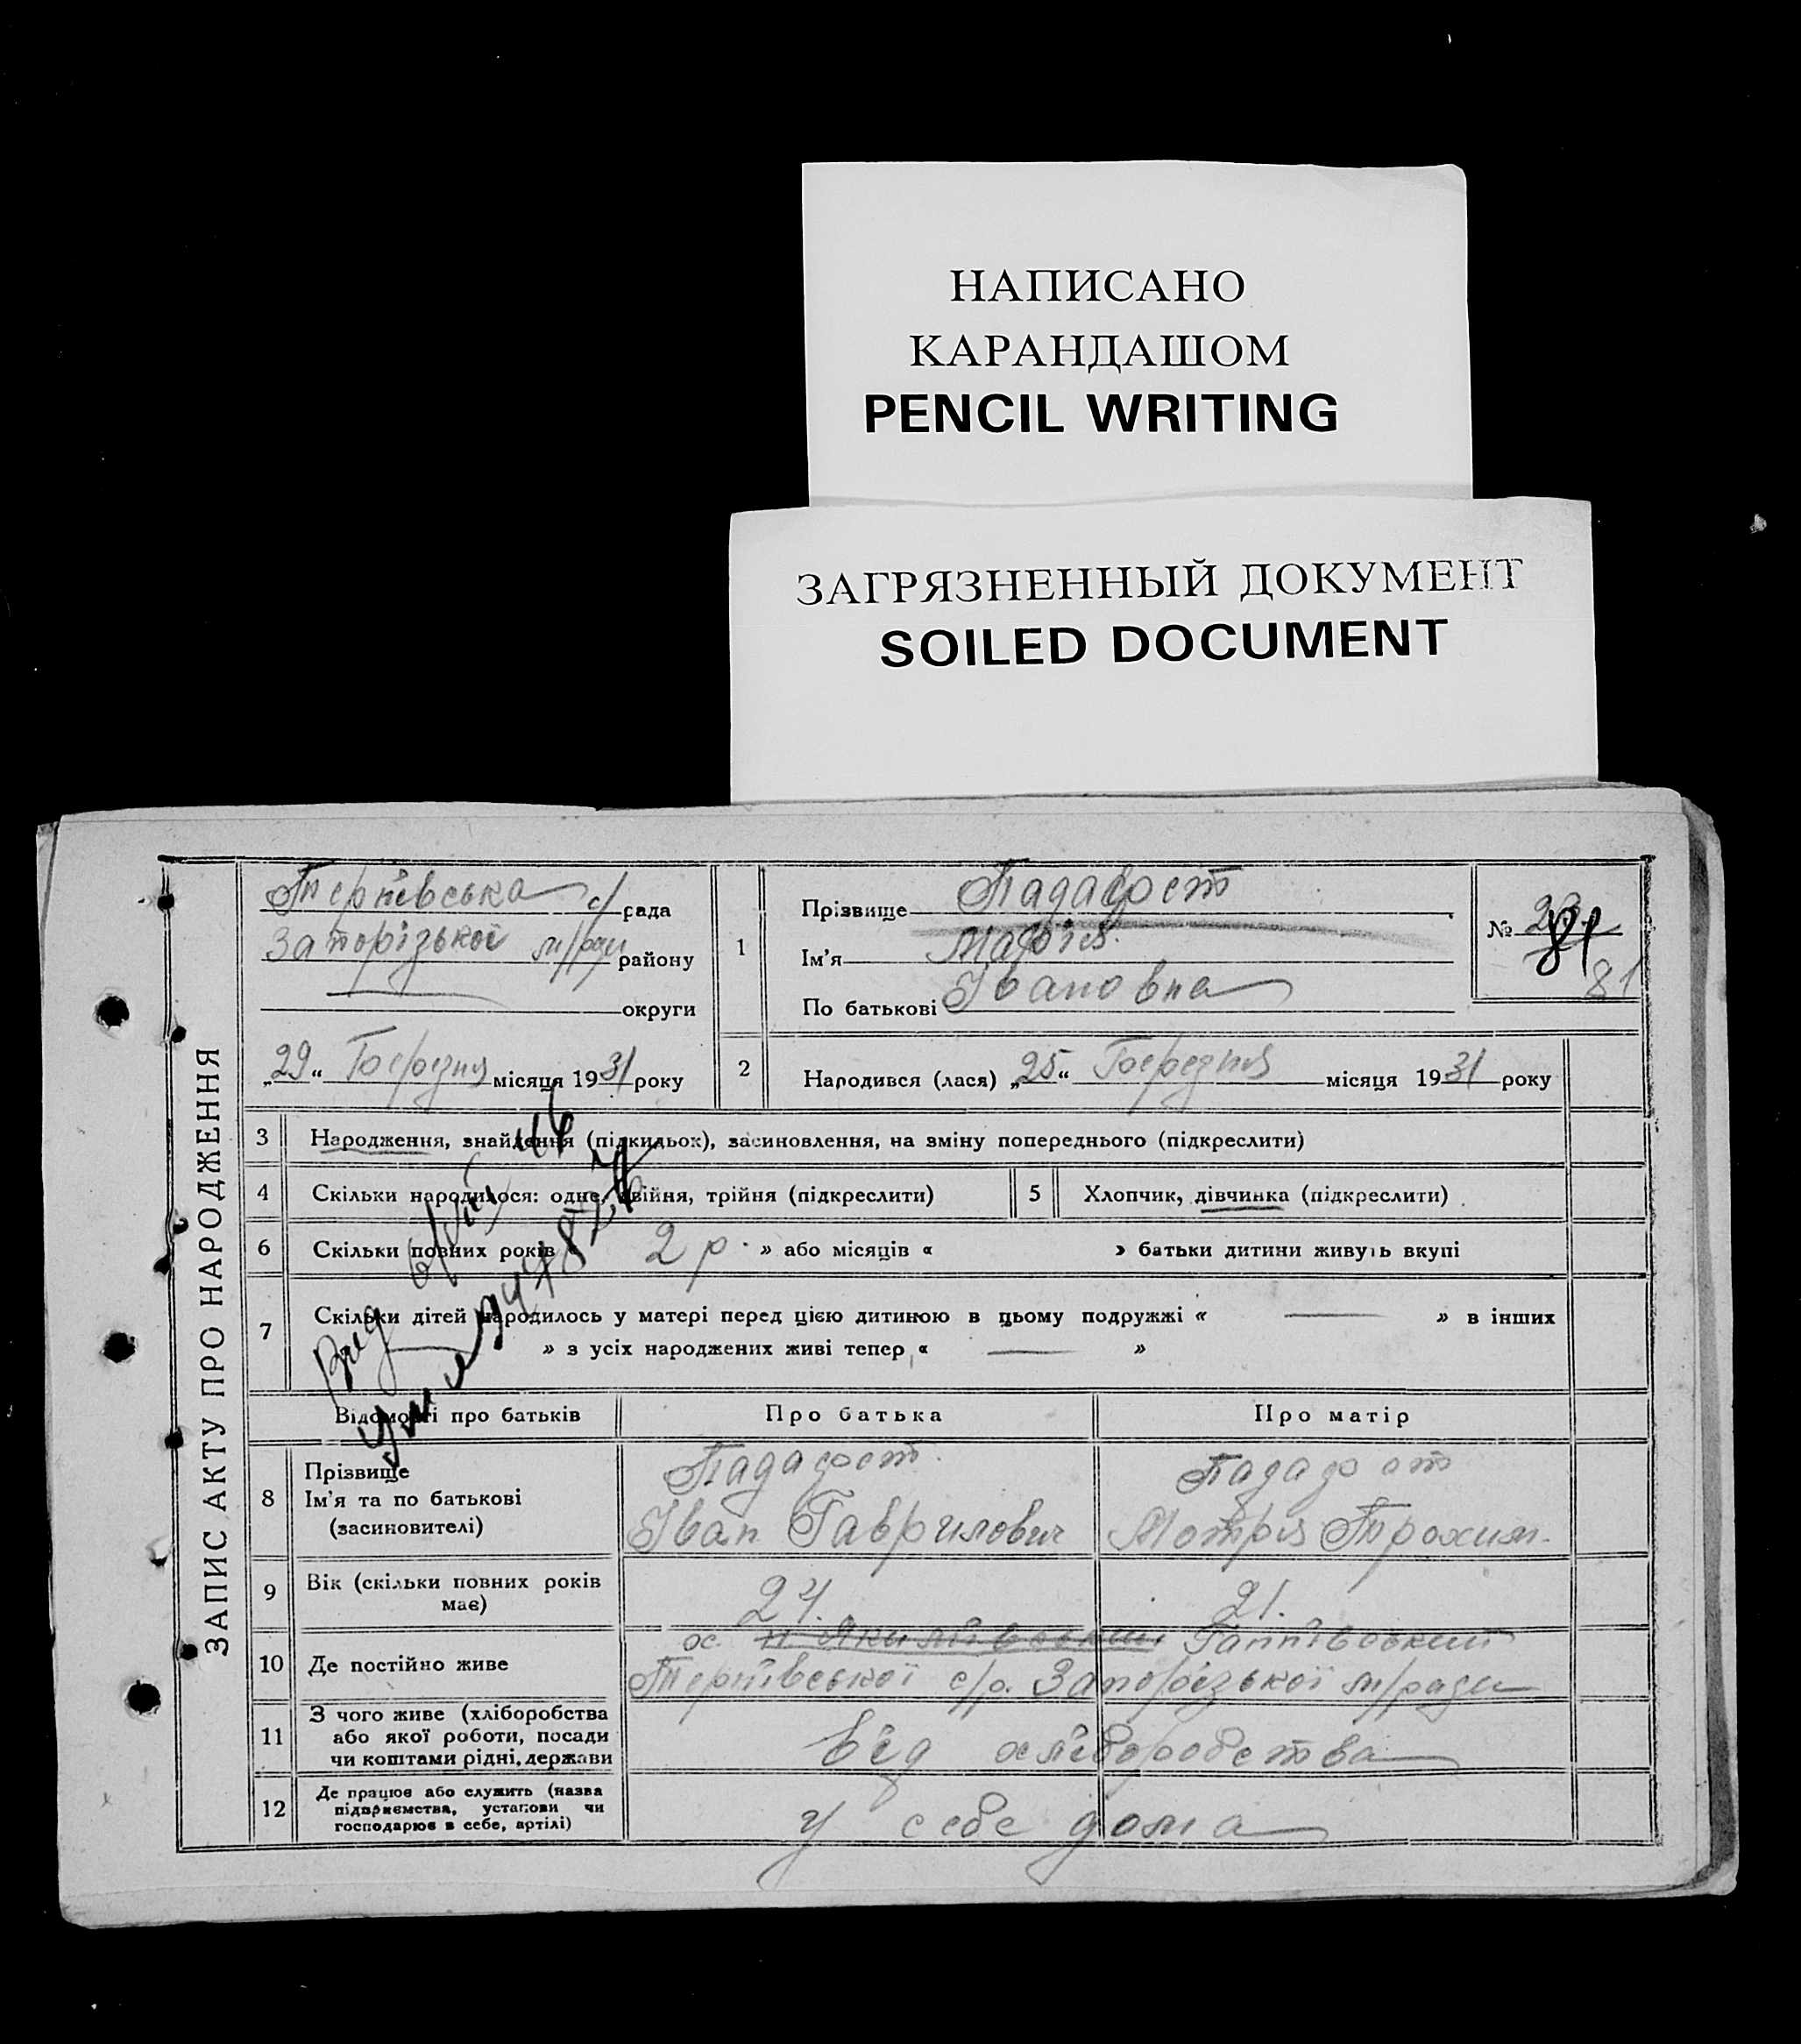 НАПИСАНО
КАРАНДАШОМ
PENCIL WRITING
ЗАГРЯЗНЕННЫЙ ДОКУМЕНТ
SOILED DOCUMENT
ЗАПИС АКТУ ПРО НАРОДЖЕННЯ
Тернівська с/рада
Запорізької м/ради району
округи
„29“ Березня місяця 1931 року
1
Прізвище
Ім'я Марія
По батькові Івановна
№ 81
81
2
Народився (лася) „25“ Березня місяця 1931 року
3 Народження, знайдення (підкидьок), засиновлення, на зміну попереднього (підкреслити)
4 Скільки народилося: одне, двійня, трійня (підкреслити)
5 Хлопчик, дівчинка (підкреслити)
6 Скільки повних років 2 р. » або місяців « » батьки дитини живуть вкупі
7 Скільки дітей народилось у матері перед цією дитиною в цьому подружжі « — » в інших
» з усіх народжених живі тепер « — »
Відомості про батьків Про батька Про матір
8 Прізвище
Ім'я та по батькові
(засиновителі)
Іван Гаврилович Мотря Трохим.
9 Вік (скільки повних років
має)
24. 21.
10 Де постійно живе
х. Ганнівський
Тернівської с/р. Запорізької м/ради
11 З чого живе (хліборобства
або якої роботи, посади
чи коштами рідні, держави
від хліборобства
12 Де працює або служить (назва
підприємства, установи чи
господарює в себе, артілі)
у себе дома